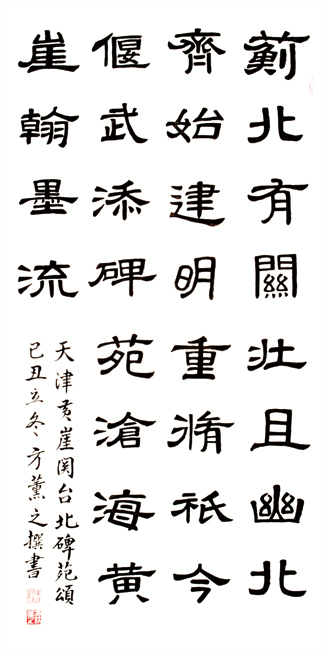 薊北有關壯且幽北
齊始建明重脩祇今
偃武添碑苑滄海黄
崖翰墨流
天津黄崖関台北碑苑頌
己丑立冬方薰之撰書